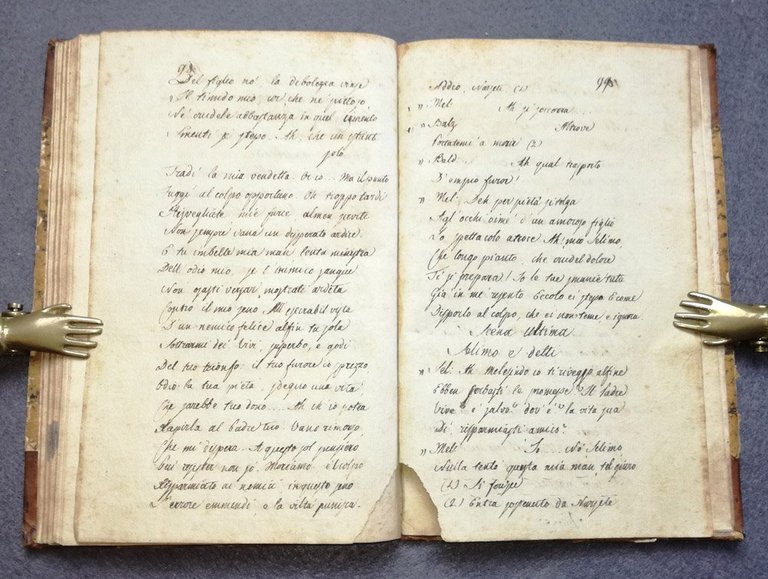 Del figlio no' la debolezza vinse
Il timido mio cor che ne
Ne' crudele abbastanza in quel cimento
Ah, che un istante
solo
Tradì la mia vendetta. Ma il punto
Fuggì al colpo opportuno. Oh troppo tardi
Risvegliate mie furce almen
Non sempre vana un disperato ardire
E tu imbelle mia man
Dell' odio mio, se l' inimico sangue
Non osasti versar, mostrati ardita
Contro il mio seno. All' esecrabil vista
D' un nemico felice alfin tu sola
Sottrarmi dei. Vivi superbo, e godi
Del tuo trionfo: il tuo furore io sprezzo
Odio la tua pietà, sdegno una vita
Che sarebbe tuo dono.... Ah ch' io potea
Rapirla al Padre tuo. Vano rimorso
Che mi dispera. A questo sol pensiero
Più resister non so. Moriamo. E il colpo
Risparmiato ai nemici in questo seno
L' errore emmendi, e la viltà punisca.
Addio, (1)
" Mel: Ah si soccorra
" Balz Altrove
Portatemi a morir (2)
" Bald... Ah qual trasporto
D' empio furor!
" Mel: Deh per pietà si tolga
Agl' occhi oimè d' un amoroso figlio
Lo spettacolo atroce. Ah! mio Selimo,
Che lungo pianto, che crudel dolore
Ti si prepara! Io le tue smanie tutte
Già in me risento
al colpo, che ei non teme e ignora
Scena Ultima
Selimo e detti
" Sel: Ah Melesindo io ti riveggo alfine
Ebben serbasti le promesse? Il Padre
Vive? è salvo? dov' è? la vita sua
Di risparmiasti amico?
" Mel: Io.. No Selimo
Nulla tentò questa mia man tel giuro
(1) Si ferisce
(2) Entra sostenuto da